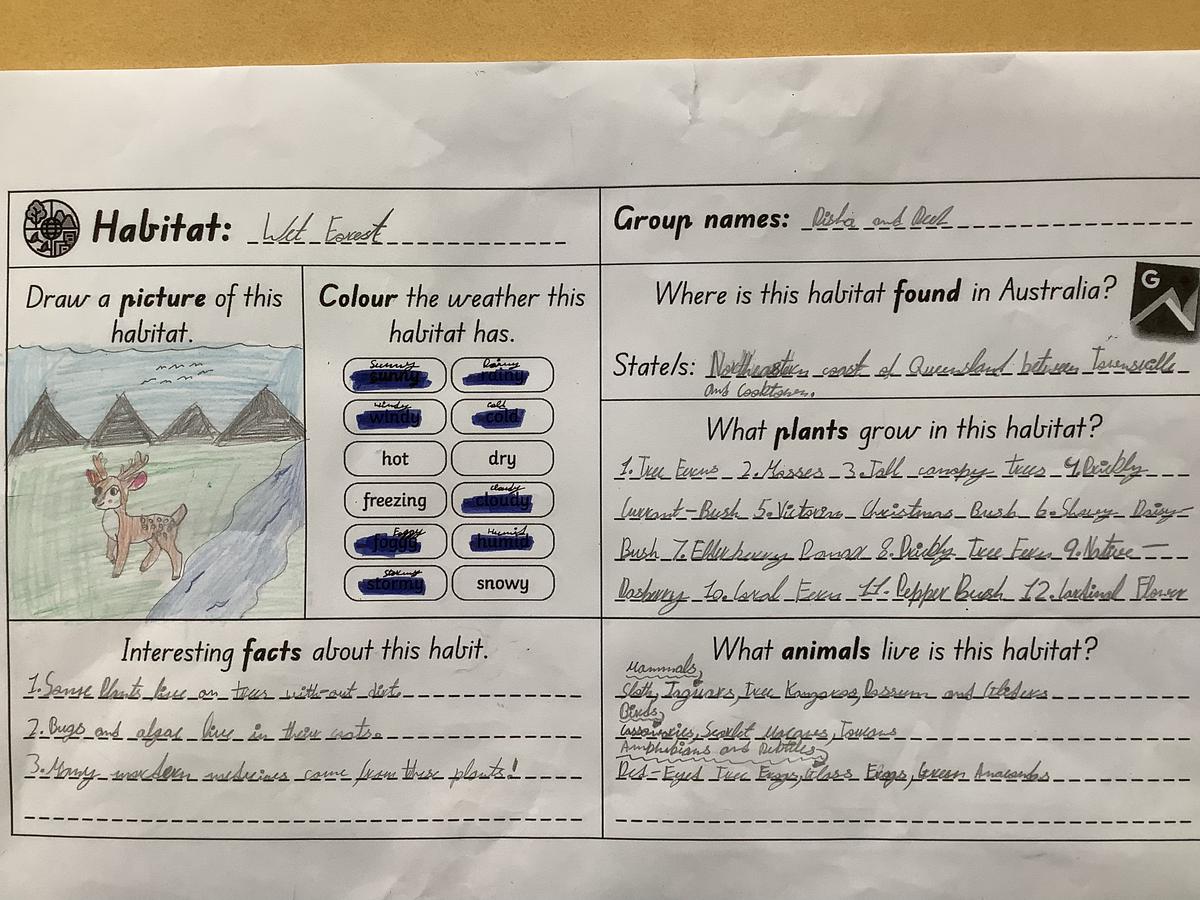 Habitat: Wet Forest
Group names: Disha and
Draw a picture of this
habitat.
Colour the weather this
habitat has.
Sunny
sunny
Rainy
rainy
windy
windy
cold
cold
hot
dry
freezing
cloudy
cloudy
Foggy
foggy
Humid
humid
Stormy
stormy
snowy
Where is this habitat found in Australia?
G
State/s: Northeastern coast of Queensland between Townsville
and Cooktown.
What plants grow in this habitat?
1. Tree Ferns 2. Mosses 3. Tall canopy trees 4. Prickly
Currant-Bush 5. Victorian Christmas Bush 6. Showy Daisy-
Bush 7. Elderberry 8. Prickly Tree Fern 9. Native-
10. Coral Fern 11. Pepper Bush 12. Cardinal Flower
Interesting facts about this habit.
1. Some Plants live on trees with-out dirt.
2. Bugs and algae live in their
3. Many modern medicines come from these plants!
What animals live is this habitat?
Mammals,
Sloth, Jaguars, Tree Kangaroo, Possum and Gliders
Birds,
Cassowaries, Scarlet Macaws, Toucans
Amphibians and Reptiles,
Red-Eyed Tree Frogs, Glass Frogs, Green Anacondas